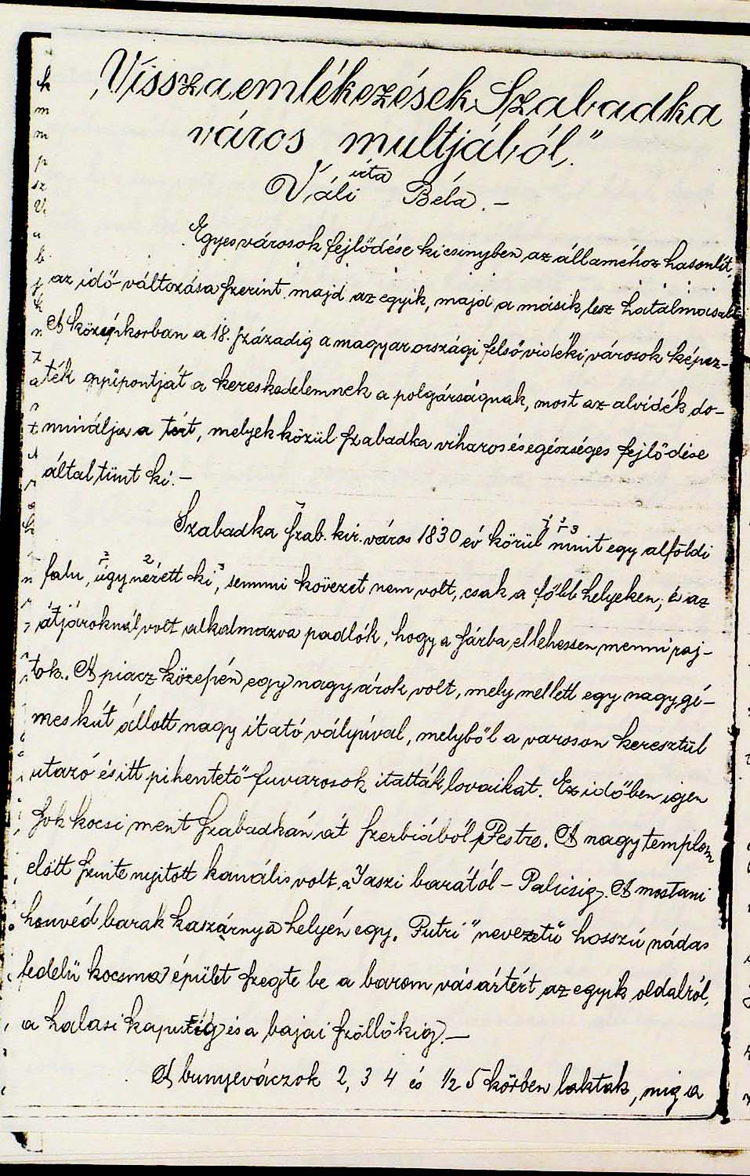 „Visszaemlékezések Szabadka
város multjából."
írta
Váli Béla. –
Egyes városok fejlődése kicsinyben az államéhoz hasonlít,
az idő változása szerint, majd az egyik, majd a másik lesz hatalmasabb
A középkorban a 18. századig a magyarországi felsővidéki városok képez-
ték gyüpontját a kereskedelemnek a polgárságnak, most az alvidék do-
minálja a tért, melyek közül szabadka viharos és egészséges fejlődése
által tünt ki. –
Szabadka szab. kir. város 1830 év körül mint egy alföldi
falu, úgy nézett ki, semmi kövezet nem volt, csak a főbb helyeken, és az
átjáróknál volt alkalmazva padlók, hogy a sárba el lehessen menni raj-
tok. A piacz közepén egy nagy árok volt, mely mellett egy nagy gé-
mes kút állott nagy itató vályúval, melyből a városon keresztül
utazó és itt pihentető fuvarosok itatták lovaikat. Ez időben igen
sok kocsi ment Szabadkán át Szerbiából Pestre. A nagy templom
előtt szinte nyitott kanális volt, a Jaszi barától – Palicsig. A mostani
honvéd barak kaszárnya helyén egy „Putri" nevezetű hosszú nádas
fedelü kocsma épület szegte be a barom vásártért az egyik oldalról,
a halasi kapuig és a bajai szőllőkig. –
A bunyeváczok 2, 3 4 és 1/2 5 körben laktak, mig a